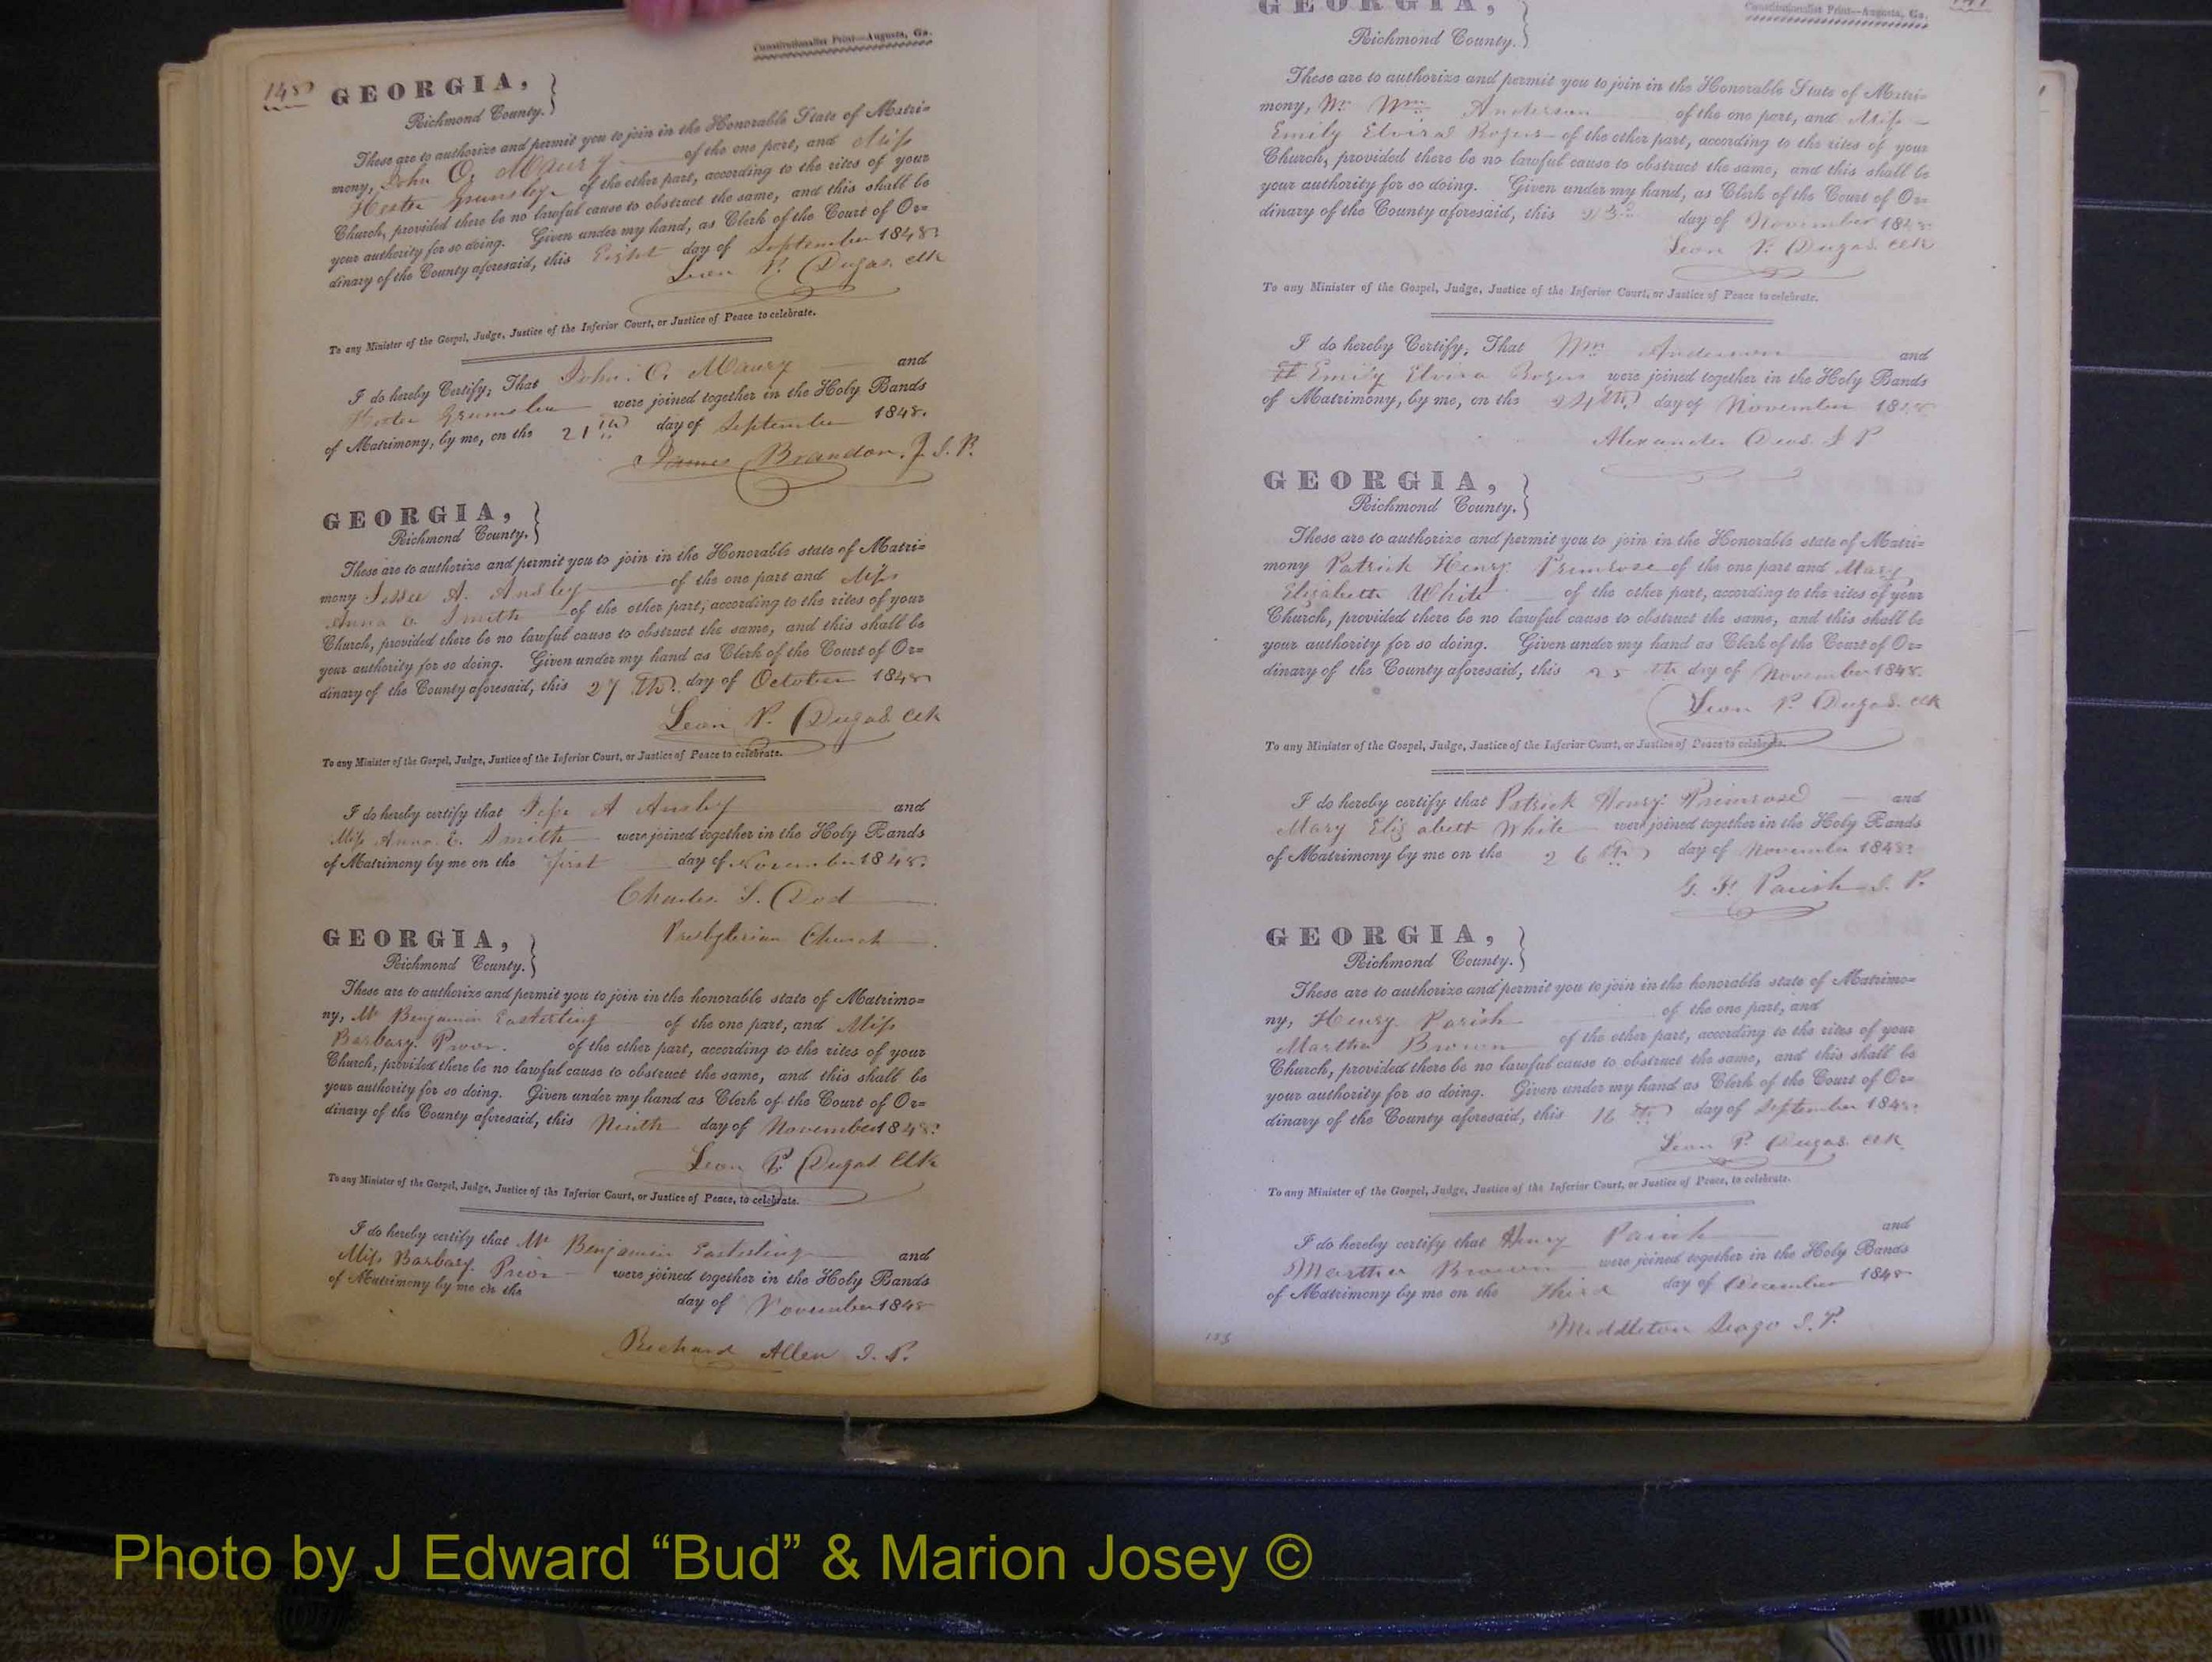 148
Constitutionalist Print—Augusta, Ga.
GEORGIA,
Richmond County.
These are to authorize and permit you to join in the Honorable State of Matri=
mony, John O. Maury of the one part, and Miss
Hester of the other part, according to the rites of your
Church, provided there be no lawful cause to obstruct the same, and this shall be
your authority for so doing. Given under my hand, as Clerk of the Court of Or=
dinary of the County aforesaid, this Eight day of September 1848
Leon P. Dugas. Clk
To any Minister of the Gospel, Judge, Justice of the Inferior Court, or Justice of Peace to celebrate.
I do hereby Certify, That John. O. Maury and
Hester were joined together in the Holy Bands
of Matrimony, by me, on the 21 day of September 1848.
James Brandon. J. I. P.
GEORGIA,
Richmond County.
These are to authorize and permit you to join in the Honorable state of Matri=
mony Jesse A. Ansley of the one part and Miss
Anna E Smith of the other part, according to the rites of your
Church, provided there be no lawful cause to obstruct the same, and this shall be
your authority for so doing. Given under my hand as Clerk of the Court of Or=
dinary of the County aforesaid, this 27 th. day of October 1848
Leon P. Dugas Clk
To any Minister of the Gospel, Judge, Justice of the Inferior Court, or Justice of Peace to celebrate.
I do hereby certify that Jesse A Ansley and
Miss Anna. E. Smith were joined together in the Holy Bands
of Matrimony by me on the first day of November 1848.
Charles S. Dod
Presbyterian Church
GEORGIA,
Richmond County.
These are to authorize and permit you to join in the honorable state of Matrimo=
ny, Mr Benjamin Easterling of the one part, and Miss
Barbary. of the other part, according to the rites of your
Church, provided there be no lawful cause to obstruct the same, and this shall be
your authority for so doing. Given under my hand as Clerk of the Court of Or=
dinary of the County aforesaid, this Ninth day of November 1848
Leon P. Dugas Clk
To any Minister of the Gospel, Judge, Justice of the Inferior Court, or Justice of Peace, to celebrate.
I do hereby certify that Mr Benjamin Easterling and
Miss Barbary. Prior were joined together in the Holy Bands
of Matrimony by me on the
day of November 1848
Richard Allen J. P.
GEORGIA,
Constitutionalist Print—Augusta, Ga.
Richmond County.
These are to authorize and permit you to join in the Honorable State of Matri=
mony, Mr. Wm. Anderson of the one part, and Miss
Emily Elvira Rogers of the other part, according to the rites of your
Church, provided there be no lawful cause to obstruct the same, and this shall be
your authority for so doing. Given under my hand, as Clerk of the Court of Or=
dinary of the County aforesaid, this day of November 1848
Leon P. Dugas. Clk
To any Minister of the Gospel, Judge, Justice of the Inferior Court, or Justice of Peace to celebrate.
I do hereby Certify, That Wm. Anderson and
Emily Elvira Rogers were joined together in the Holy Bands
of Matrimony, by me, on the 24th day of November 1848
Alexander Deas. J P
GEORGIA,
Richmond County.
These are to authorize and permit you to join in the Honorable state of Matri=
mony Patrick Henry Primrose of the one part and Mary
Elizabeth White of the other part, according to the rites of your
Church, provided there be no lawful cause to obstruct the same, and this shall be
your authority for so doing. Given under my hand as Clerk of the Court of Or=
dinary of the County aforesaid, this 25 th day of November 1848.
Leon P. Dugas. Clk
To any Minister of the Gospel, Judge, Justice of the Inferior Court, or Justice of Peace to celebrate.
I do hereby certify that Patrick Henry Primrose and
Mary Elizabeth White were joined together in the Holy Bands
of Matrimony by me on the 26th day of November 1848
Parish J. P.
GEORGIA,
Richmond County.
These are to authorize and permit you to join in the honorable state of Matrimo=
ny, Henry Parish of the one part, and
Martha Brown of the other part, according to the rites of your
Church, provided there be no lawful cause to obstruct the same, and this shall be
your authority for so doing. Given under my hand as Clerk of the Court of Or=
dinary of the County aforesaid, this 16 th day of September 1848.
Leon P. Dugas. Clk.
To any Minister of the Gospel, Judge, Justice of the Inferior Court, or Justice of Peace, to celebrate.
I do hereby certify that Henry Parish and
Martha Brown were joined together in the Holy Bands
of Matrimony by me on the Third day of December 1848
Middleton Seago J. P.
Photo by J Edward “Bud” & Marion Josey ©